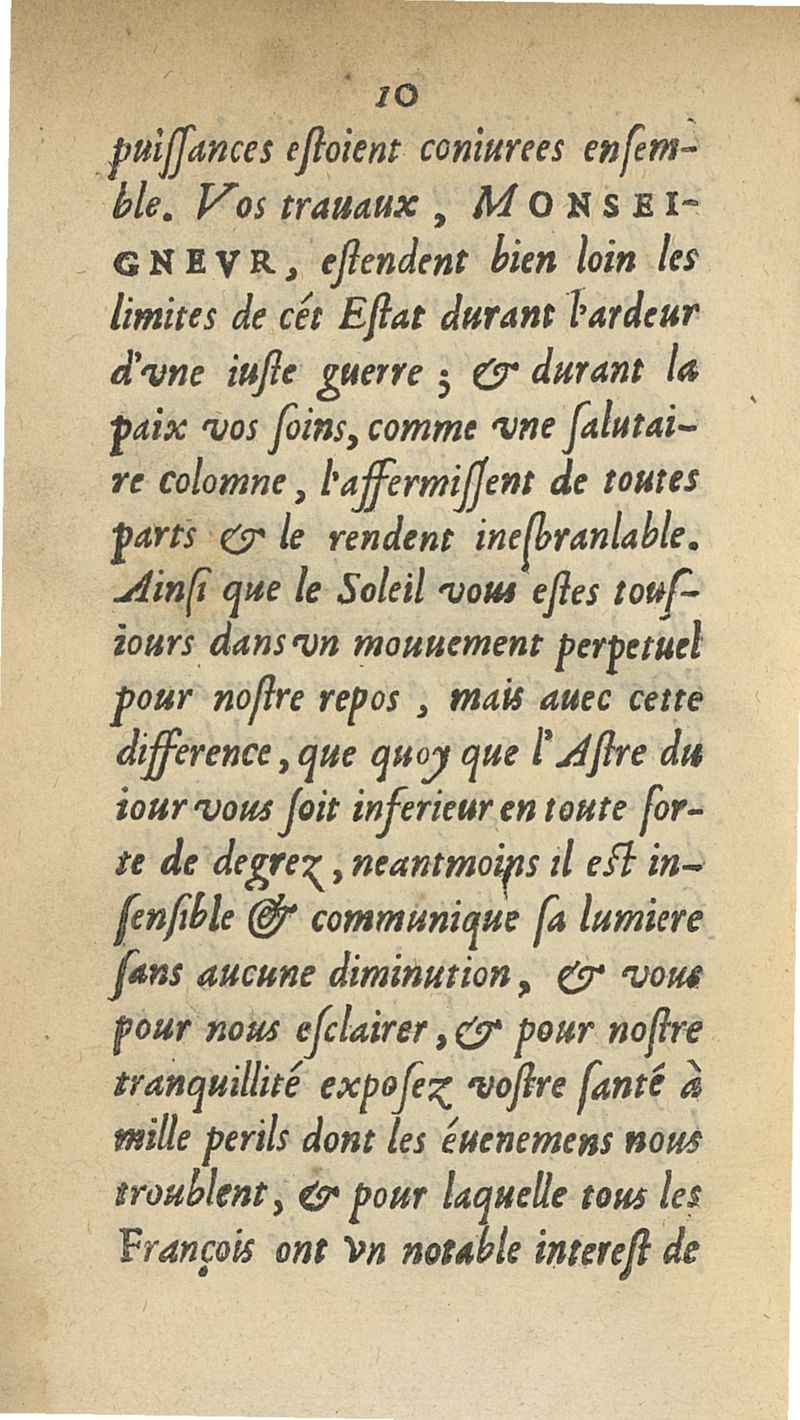 10
puiſſances eſtoient coniurees enſem-
ble. Vos trauaux, MONSEI-
GNEVR, eſtendent bien loin les
limites de cét Eſtat durant l'ardeur
d'vne iuſte guerre; & durant la
paix vos ſoins, comme vne ſalutai-
re colomne, l'affermiſſent de toutes
parts & le rendent ineſbranlable.
Ainſi que le Soleil vous eſtes touſ-
iours dans vn mouuement perpetuel
pour noſtre repos, mais auec cette
difference, que quoy que l'Aſtre du
iour vous ſoit inferieur en toute ſor-
te de degrez, neantmoins il eſt in-
ſenſible & communique ſa lumiere
ſans aucune diminution, & vous
pour nous eſclairer, & pour noſtre
tranquillité expoſez voſtre ſanté à
mille perils dont les éuenemens nous
troublent, & pour laquelle tous les
François ont vn notable intereſt de